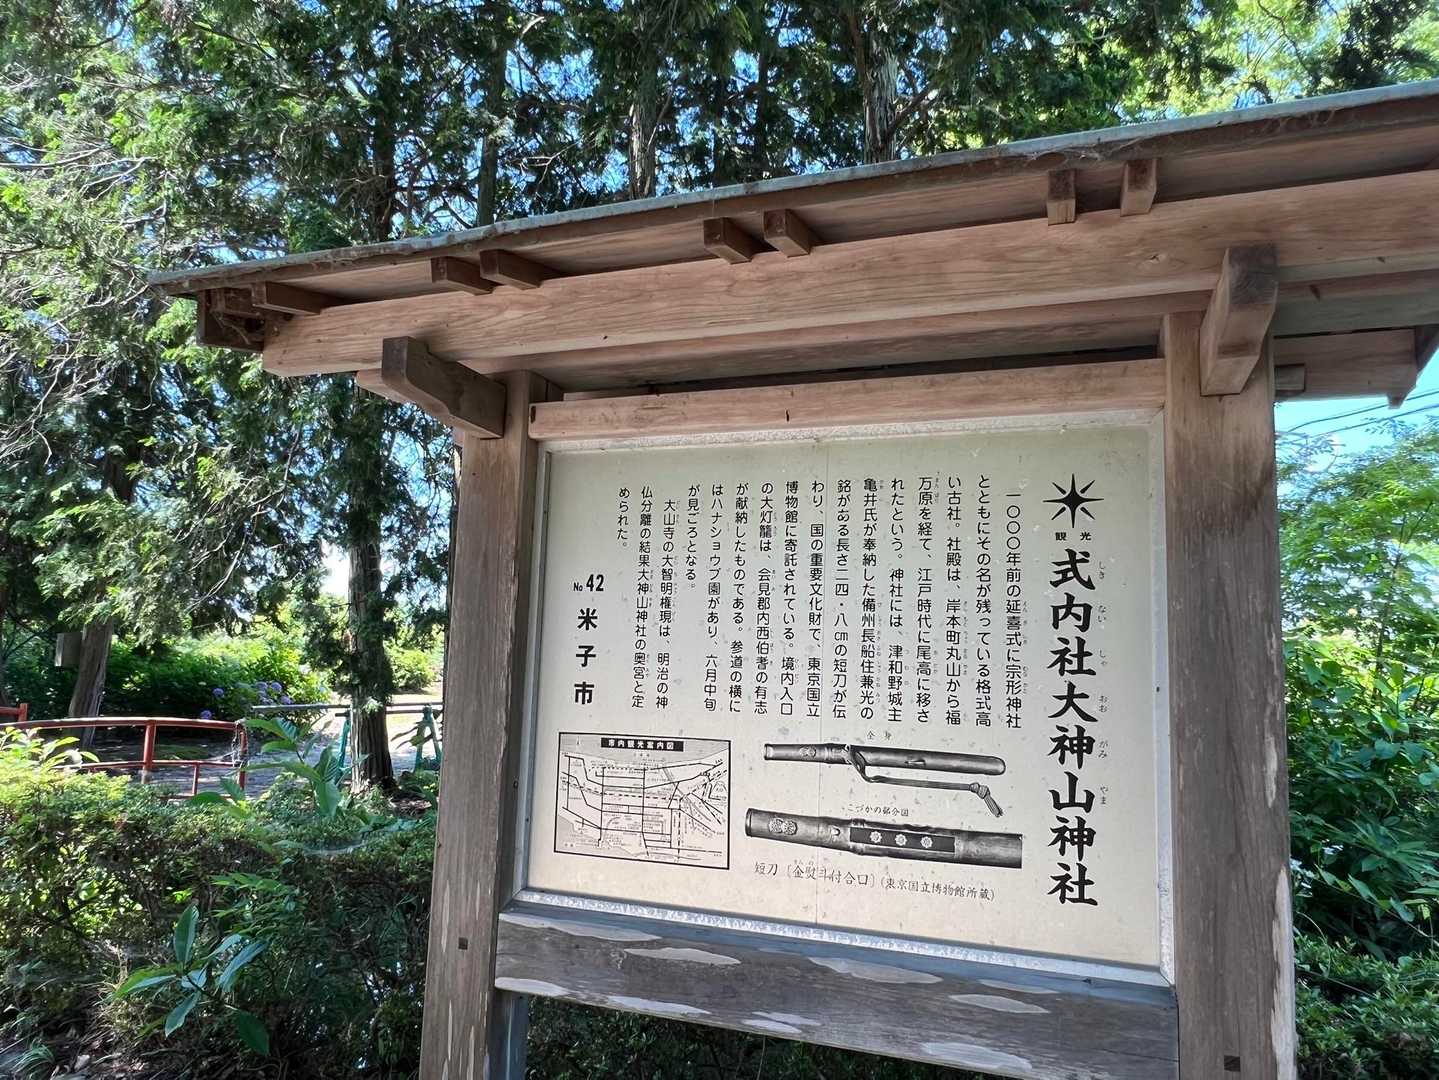 観光
式内社大神山神社
しき ない しゃ おお がみ やま
一〇〇〇年前の延喜式に宗形神社
とともにその名が残っている格式高
い古社。社殿は、岸本町丸山から福
万原を経て、江戸時代に尾高に移さ
れたという。神社には、津和野城主
亀井氏が奉納した備州長船住兼光の
銘がある長さ二四・八㎝の短刀が伝
わり、国の重要文化財で、東京国立
博物館に寄託されている。境内入口
の大灯籠は、会見郡内西伯耆の有志
が献納したものである。参道の横に
はハナショウブ園があり、六月中旬
が見ごろとなる。
大山寺の大智明権現は、明治の神
仏分離の結果大神山神社の奥宮と定
められた。
No 42 米子市
全身
こづかの部分図
短刀〔金熨斗付合口〕(東京国立博物館所蔵)
市内観光案内図